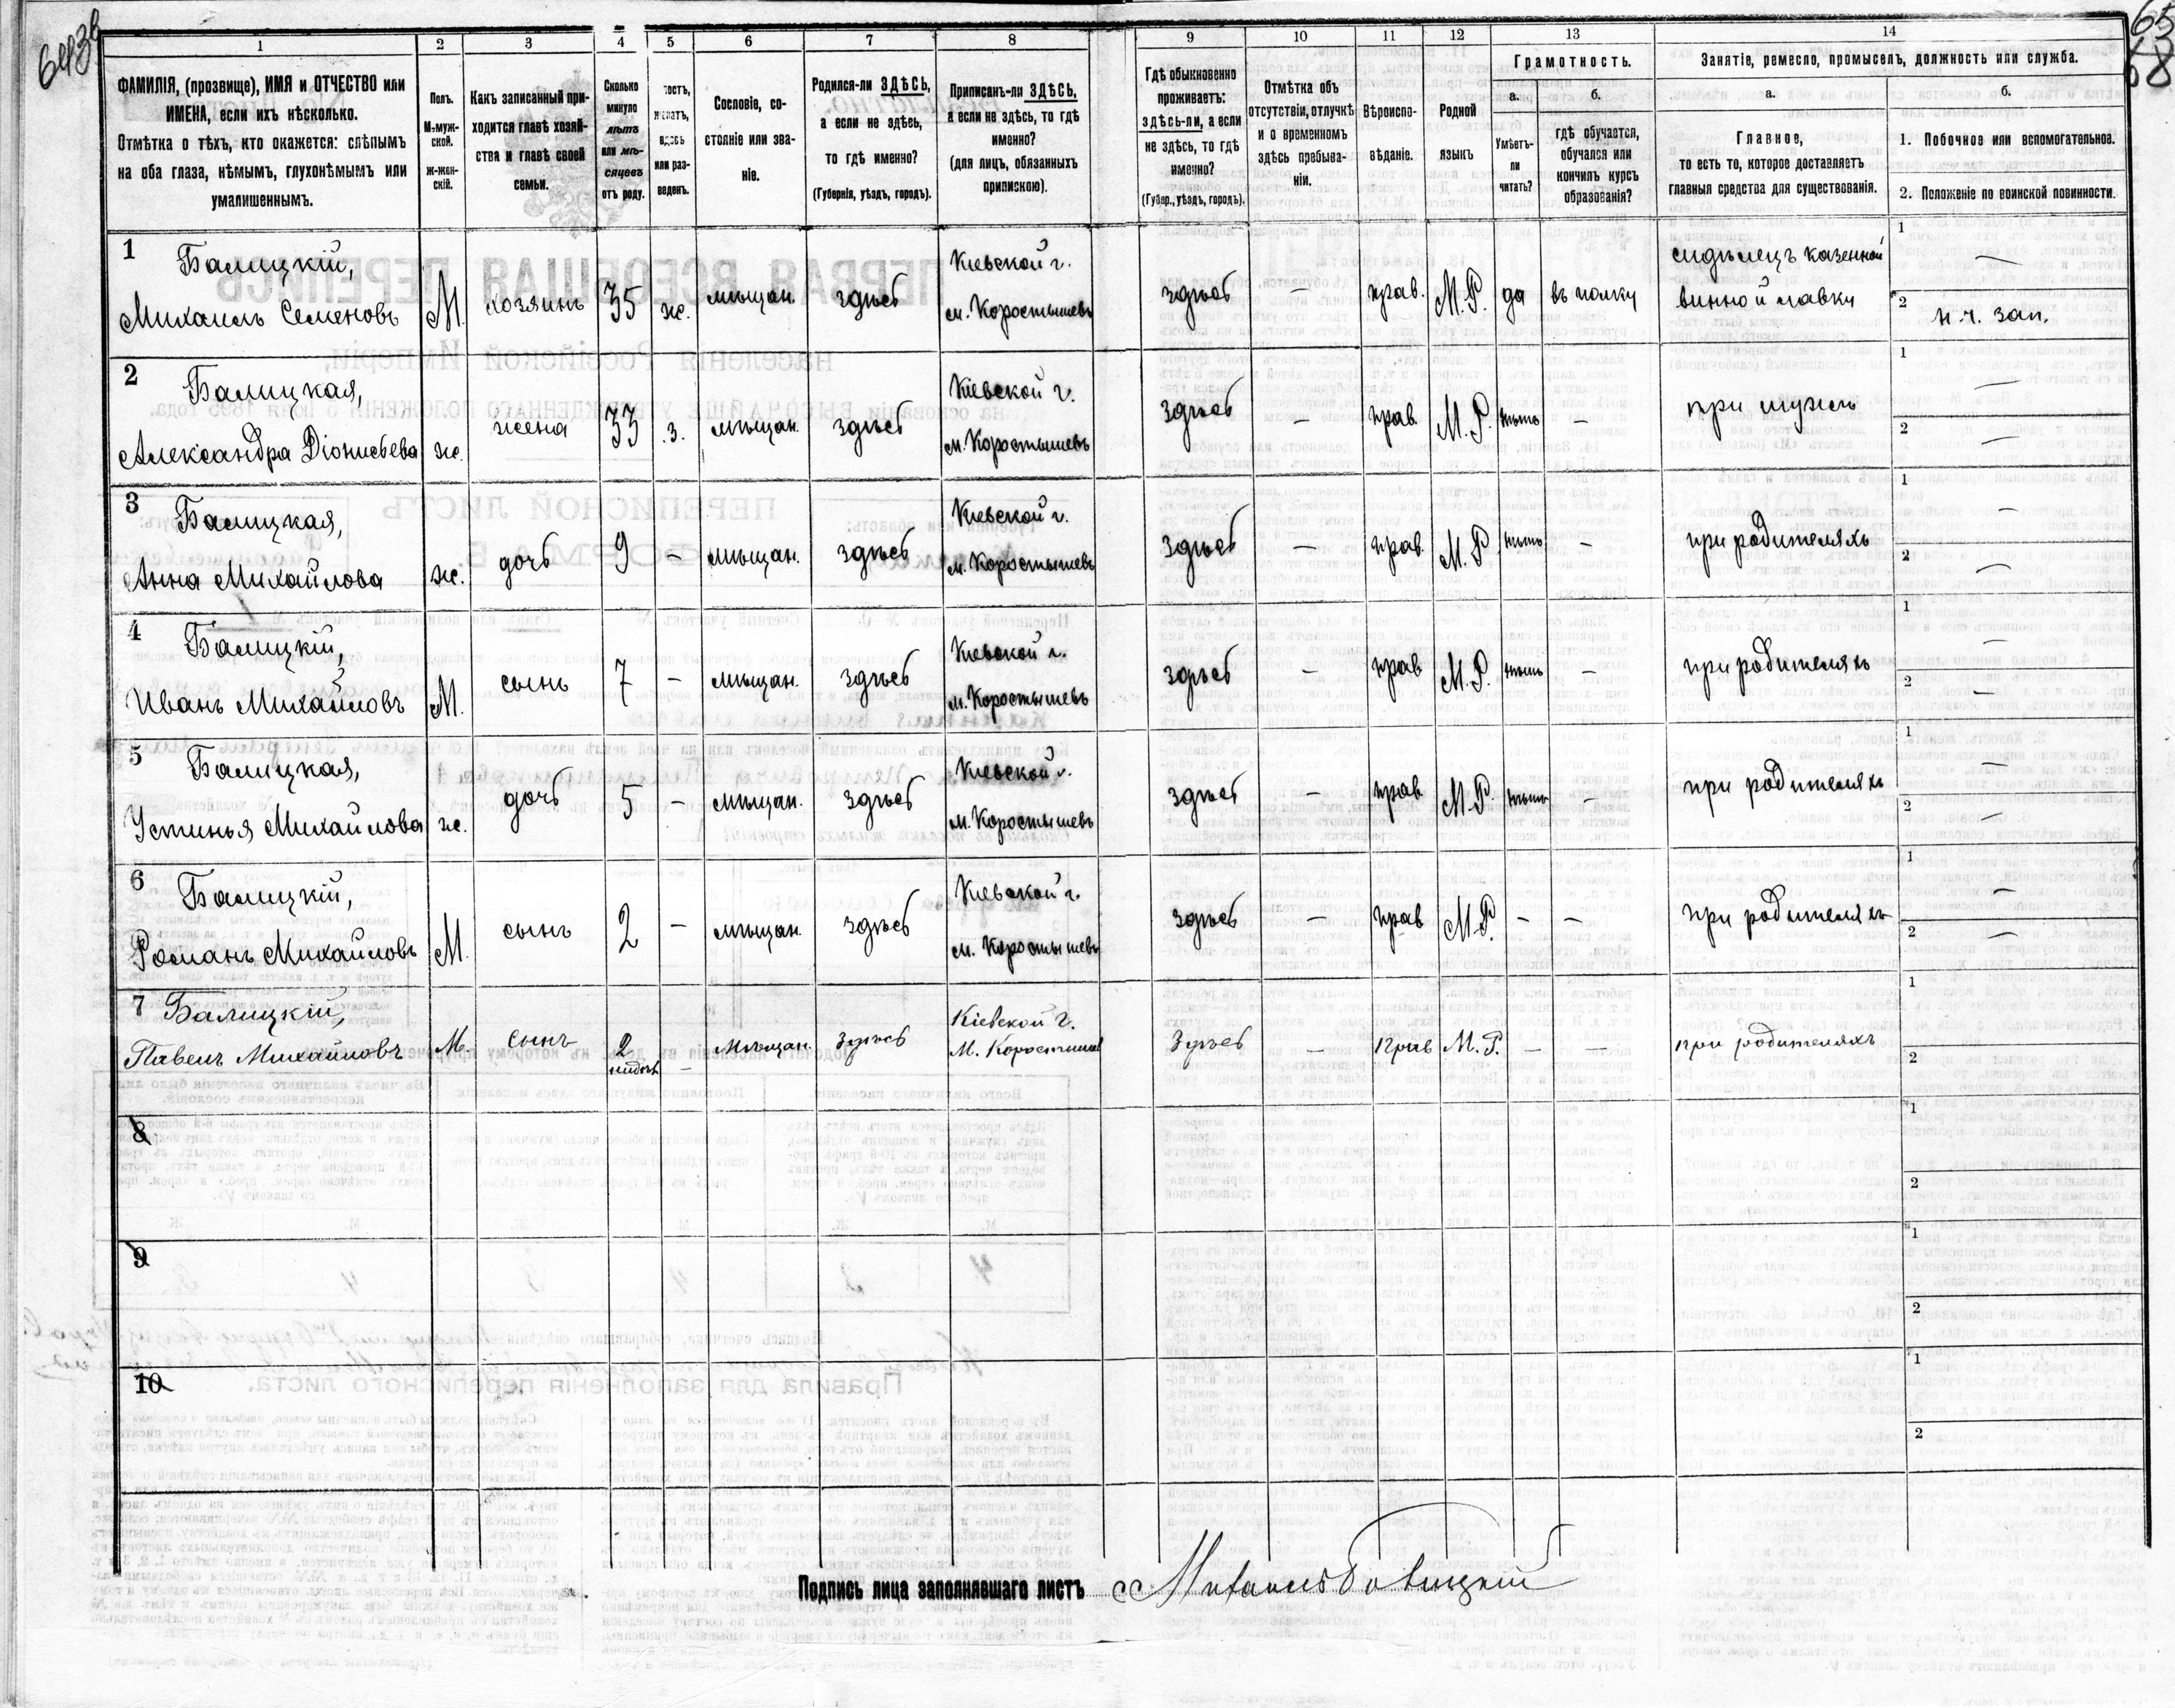 1 2 3 4 5 6 7 8 9 10 11 12 13 14
ФАМИЛІЯ, (прозвище), ИМЯ и ОТЧЕСТВО или
ИМЕНА, если ихъ нѣсколько.
Отмѣтка о тѣхъ, кто окажется: слѣпымъ
на оба глаза, нѣмымъ, глухонѣмымъ или
умалишеннымъ.
Полъ.
М-муж-
ской.
ж-жен-
скій.
Какъ записанный при-
ходится главѣ хозяй-
ства и главѣ своей
семьи.
Сколько
минуло
лѣтъ
или мѣ-
сяцевъ
отъ роду.
или раз-
веденъ.
Сословіе, со-
стояніе или зва-
ніе.
Родился-ли ЗДѢСЬ,
а если не здѣсь,
то гдѣ именно?
(Губернія, уѣздъ, городъ).
Приписанъ-ли ЗДѢСЬ,
а если не здѣсь, то гдѣ
именно?
(для лицъ, обязанныхъ
припискою).
Гдѣ обыкновенно
проживаетъ:
здѣсь-ли, а если
не здѣсь, то гдѣ
именно?
(Губер., уѣздъ, городъ).
Отмѣтка объ
отсутствіи, отлучкѣ
и о временномъ
здѣсь пребыва-
ніи.
Вѣроиспо-
вѣданіе.
Родной
языкъ
Грамотность.
а.
Умѣетъ-
ли
читать?
б.
гдѣ обучается,
обучался или
кончилъ курсъ
образованія?
Занятіе, ремесло, промыселъ, должность или служба.
а.
Главное,
то есть то, которое доставляетъ
главныя средства для существованія.
б.
1. Побочное или вспомогательное.
2. Положеніе по воинской повинности.
1 Балицкій,
Михаилъ Семеновъ
М. хозяинъ 35 ж. мѣщан. здѣсь
Кіевской г.
м. Коростышевъ
здѣсь — прав. М.Р. да въ полку
сидѣлецъ казенной
винной лавки
1 —
2 н. ч. зап.
2 Балицкая,
Александра Діонисьева
ж. жена 33 з. мѣщан. здѣсь
Кіевской г.
м. Коростышевъ
здѣсь — прав. М.Р. нѣтъ — при мужѣ
1 —
2 —
3 Балицкая,
Анна Михайлова
ж. дочь 9 — мѣщан. здѣсь
Кіевской г.
м. Коростышевъ
здѣсь — прав. М.Р. нѣтъ — при родителяхъ
1 —
2 —
4 Балицкій,
Иванъ Михайловъ
М. сынъ 7 — мѣщан. здѣсь
Кіевской г.
м. Коростышевъ
здѣсь — прав М.Р. нѣтъ — при родителяхъ
1 —
2 —
5 Балицкая,
Устинья Михайлова
ж. дочь 5 — мѣщан. здѣсь
Кіевской г.
м. Коростышевъ
здѣсь — прав М.Р. нѣтъ — при родителяхъ
1 —
2 —
6 Балицкій,
Романъ Михайловъ
М. сынъ 2 — мѣщан. здѣсь
Кіевской г.
м. Коростышевъ
здѣсь — прав М.Р. — — при родителяхъ
1 —
2 —
7 Балицкій,
Павелъ Михайловъ
М. сынъ 2 — мѣщан. здѣсь
Кіевской г.
М. Коростышев
здѣсь — прав М.Р. — — при родителяхъ
1
2
8
1
2
9
1
2
10
1
2
Подпись лица заполнявшаго листъ Михаилъ Балицкій